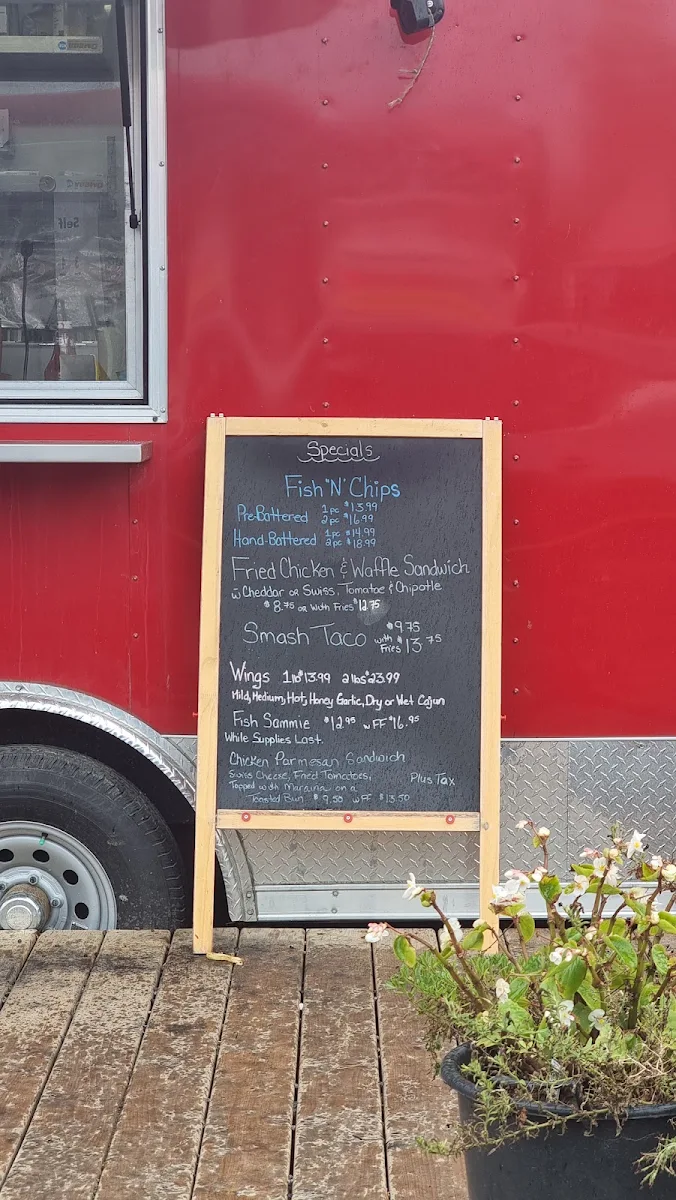 Self
Specials
Fish "N" Chips
Pre-Battered 1pc $13.99
2pc $16.99
Hand-Battered 1pc $14.99
2pc $18.99
Fried Chicken & Waffle Sandwich
w Cheddar or Swiss, Tomatoe & Chipotle
$8.75 or with Fries $12.75
Smash Taco $9.75
with Fries $13.75
Wings 1lb $13.99 2lbs $23.99
Mild, Medium, Hot, Honey Garlic, Dry or Wet Cajun
Fish Sammie $12.95 w FF $16.95
While Supplies Last.
Chicken Parmesan Sandwich
Swiss Cheese, Fried Tomatoes,
Plus Tax
Topped with Marinara on a
Toasted Bun $9.50 w FF $13.50